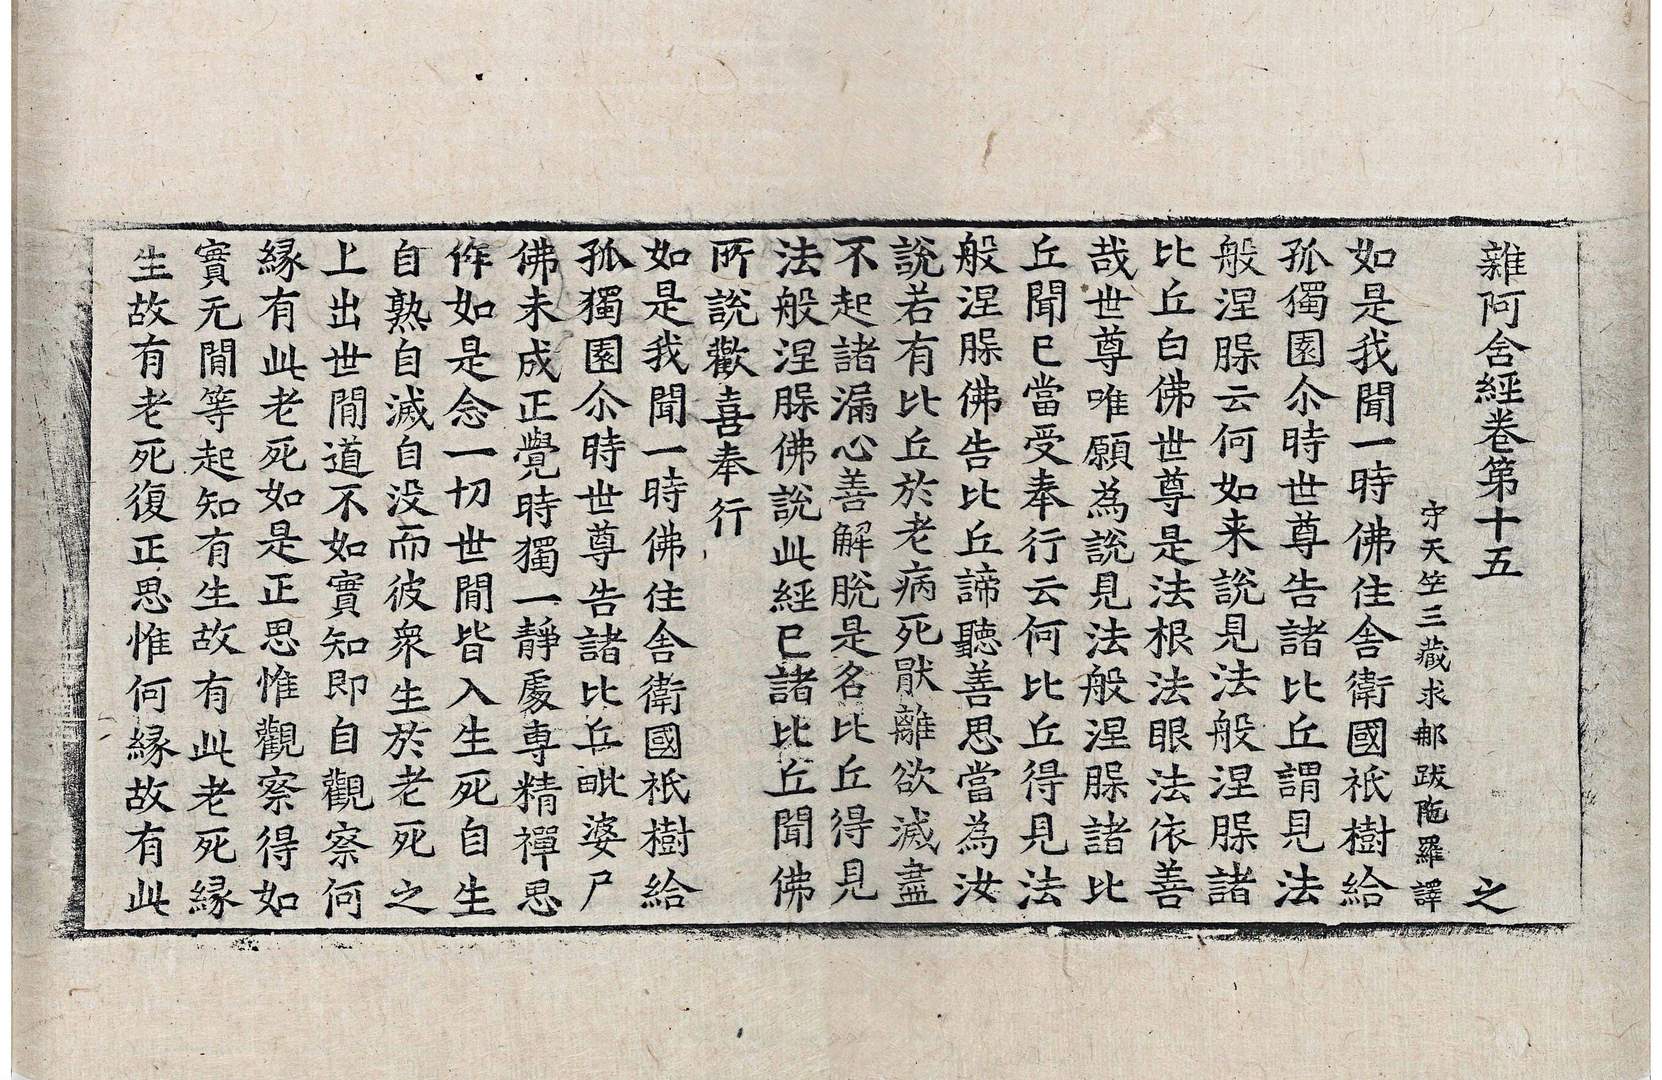 雜阿含經卷第十五 之
宋天竺三藏求那跋陁羅譯
如是我聞一時佛住舍衛國祇樹給
孤獨園尒時世尊告諸比丘謂見法
般涅槃云何如来說見法般涅槃諸
比丘白佛世尊是法根法眼法依善
哉世尊唯願為說見法般涅槃諸比
丘聞已當受奉行云何比丘得見法
般涅槃佛告比丘諦聽善思當為汝
說若有比丘於老病死猒離欲滅盡
不起諸漏心善解脫是名比丘得見
法般涅槃佛說此經已諸比丘聞佛
所說歡喜奉行
如是我聞一時佛住舍衛國祇樹給
孤獨園尒時世尊告諸比丘毗婆尸
佛未成正覺時獨一靜處專精禪思
作如是念一切世閒皆入生死自生
自熟自滅自没而彼衆生於老死之
上出世閒道不如實知即自觀察何
緣有此老死如是正思惟觀察得如
實无閒等起知有生故有此老死緣
生故有老死復正思惟何緣故有此